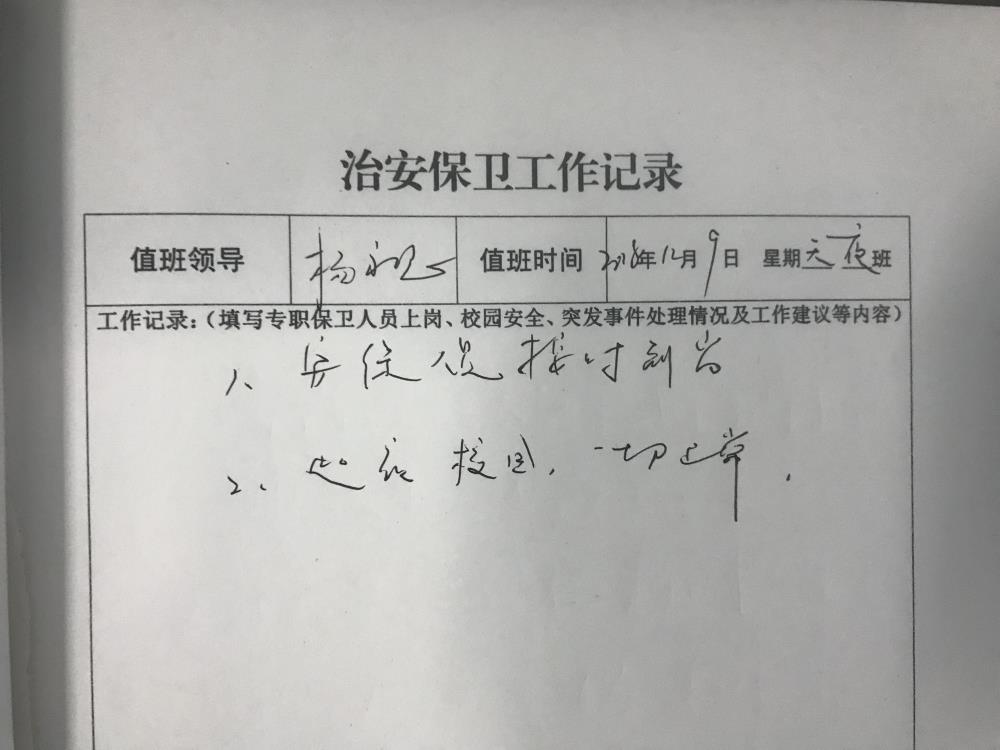 治安保卫工作记录
值班领导 杨 值班时间 2018年12月9日 星期天夜班
工作记录：（填写专职保卫人员上岗、校园安全、突发事件处理情况及工作建议等内容）
1、安保人员按时到岗
2、巡视校园，一切正常.